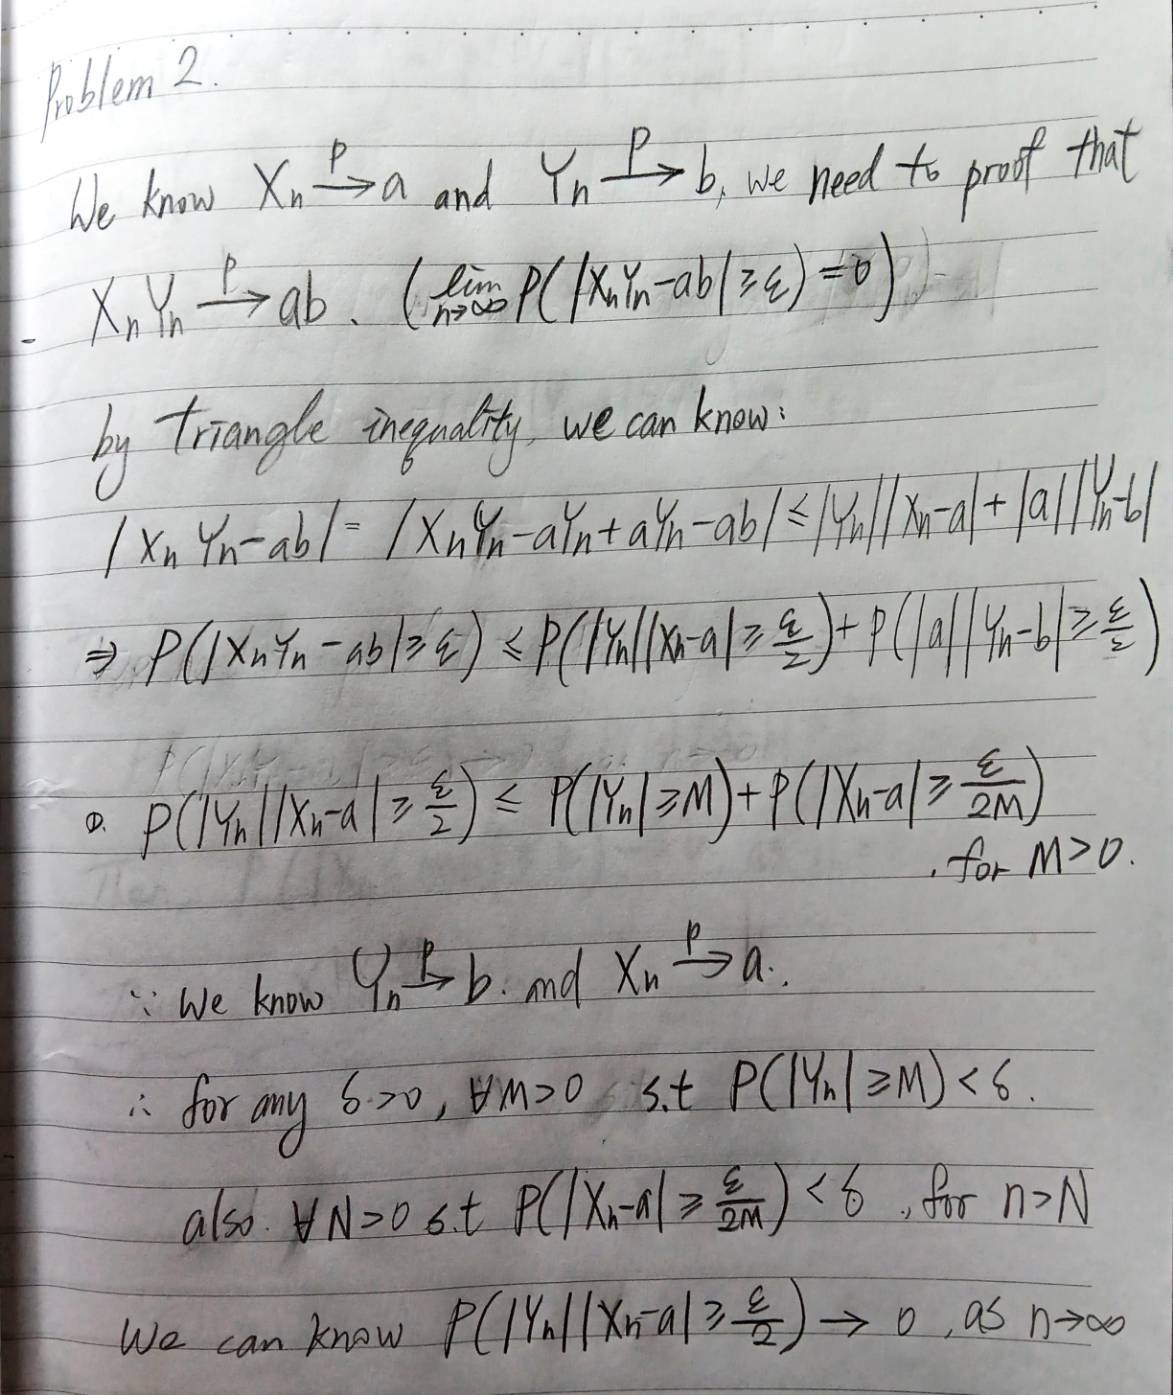 Problem 2.
We know Xn P→ a and Yn P→ b, we need to proof that
XnYn P→ ab. (lim n→∞ P(|XnYn-ab|≥ε)=0)
by triangle inequality, we can know:
|XnYn-ab| = |XnYn-aYn+aYn-ab| ≤ |Yn||Xn-a|+|a||Yn-b|
⇒ P(|XnYn-ab|≥ε) ≤ P(|Yn||Xn-a|≥ε/2)+P(|a||Yn-b|≥ε/2)
①. P(|Yn||Xn-a|≥ε/2) ≤ P(|Yn|≥M)+P(|Xn-a|≥ε/2M)
, for M>0.
∵ We know Yn P→ b. and Xn P→ a.
∴ for any δ>0, ∀M>0 s.t P(|Yn|≥M)<δ.
also. ∀N>0 s.t P(|Xn-a|≥ε/2M)<δ, for n>N
We can know P(|Yn||Xn-a|≥ε/2)→0, as n→∞